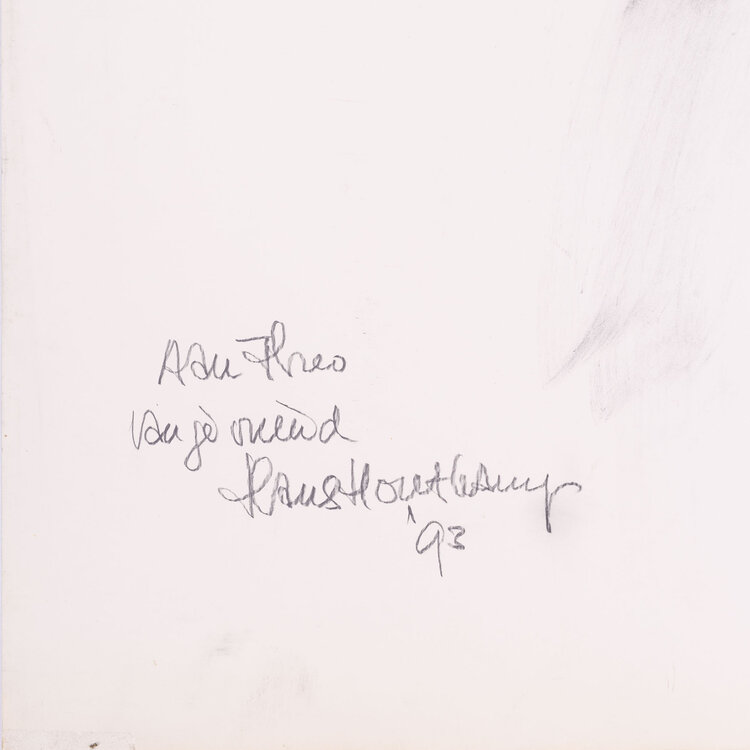 Aan Theo
van je vriend
Hans Houtkamp
'93